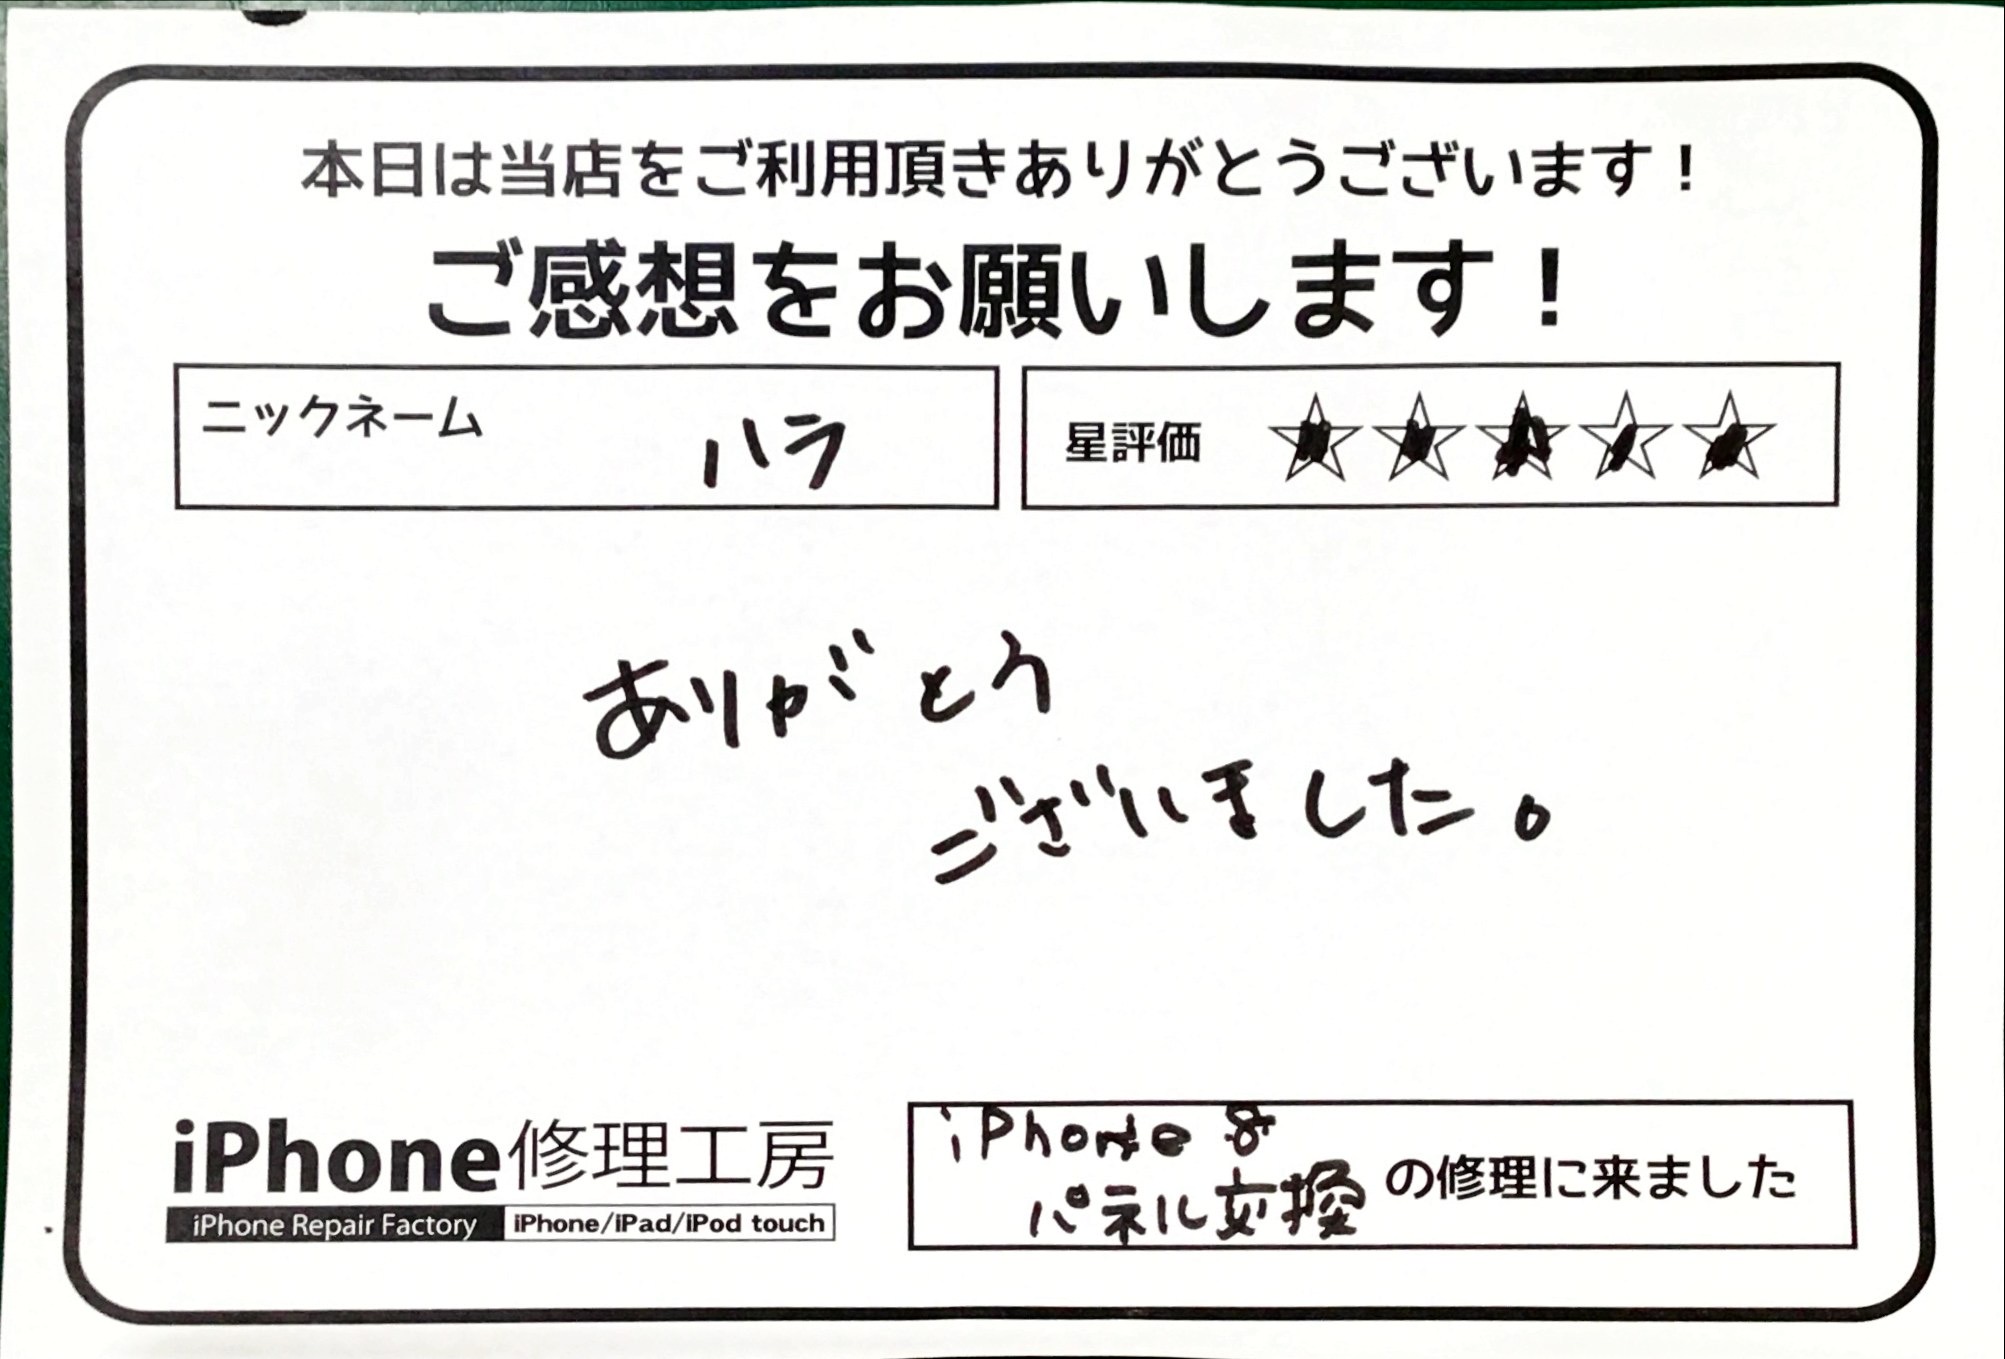 本日は当店をご利用頂きありがとうございます！
ご感想をお願いします！
ニックネーム ハラ
星評価 ★★★★★
ありがとう
ございました。
iPhone 8
パネル交換 の修理に来ました
iPhone修理工房
iPhone Repair Factory iPhone/iPad/iPod touch